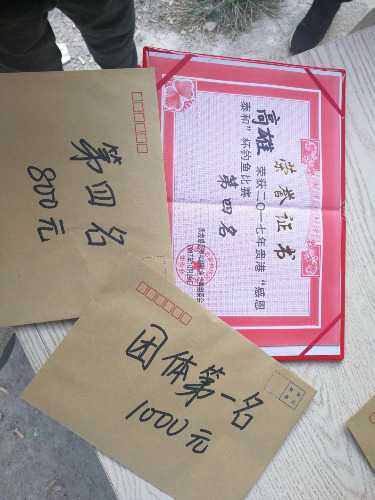 第四名
800元
荣誉证书
高雄 荣获二〇一七年贵港“感恩
泰和”杯钓鱼比赛
第四名
团体第一名
1000元